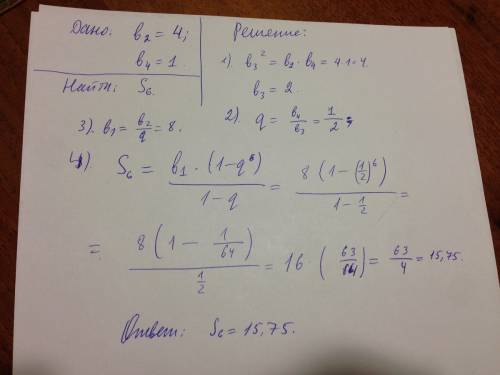 Дано: b₂ = 4;
b₄ = 1.
Найти: S₆
Решение:
1). b₃² = b₂ · b₄ = 4·1 = 4.
b₃ = 2.
2). q = b₄/b₃ = 1/2;
3). b₁ = b₂/q = 8.
4). S₆ = b₁ · (1-q⁶)/(1-q) = 8 (1 - (1/2)⁶)/(1 - 1/2) =
= 8 (1 - 1/64)/(1/2) = 16 (63/64) = 63/4 = 15,75.
Ответ: S₆ = 15,75.